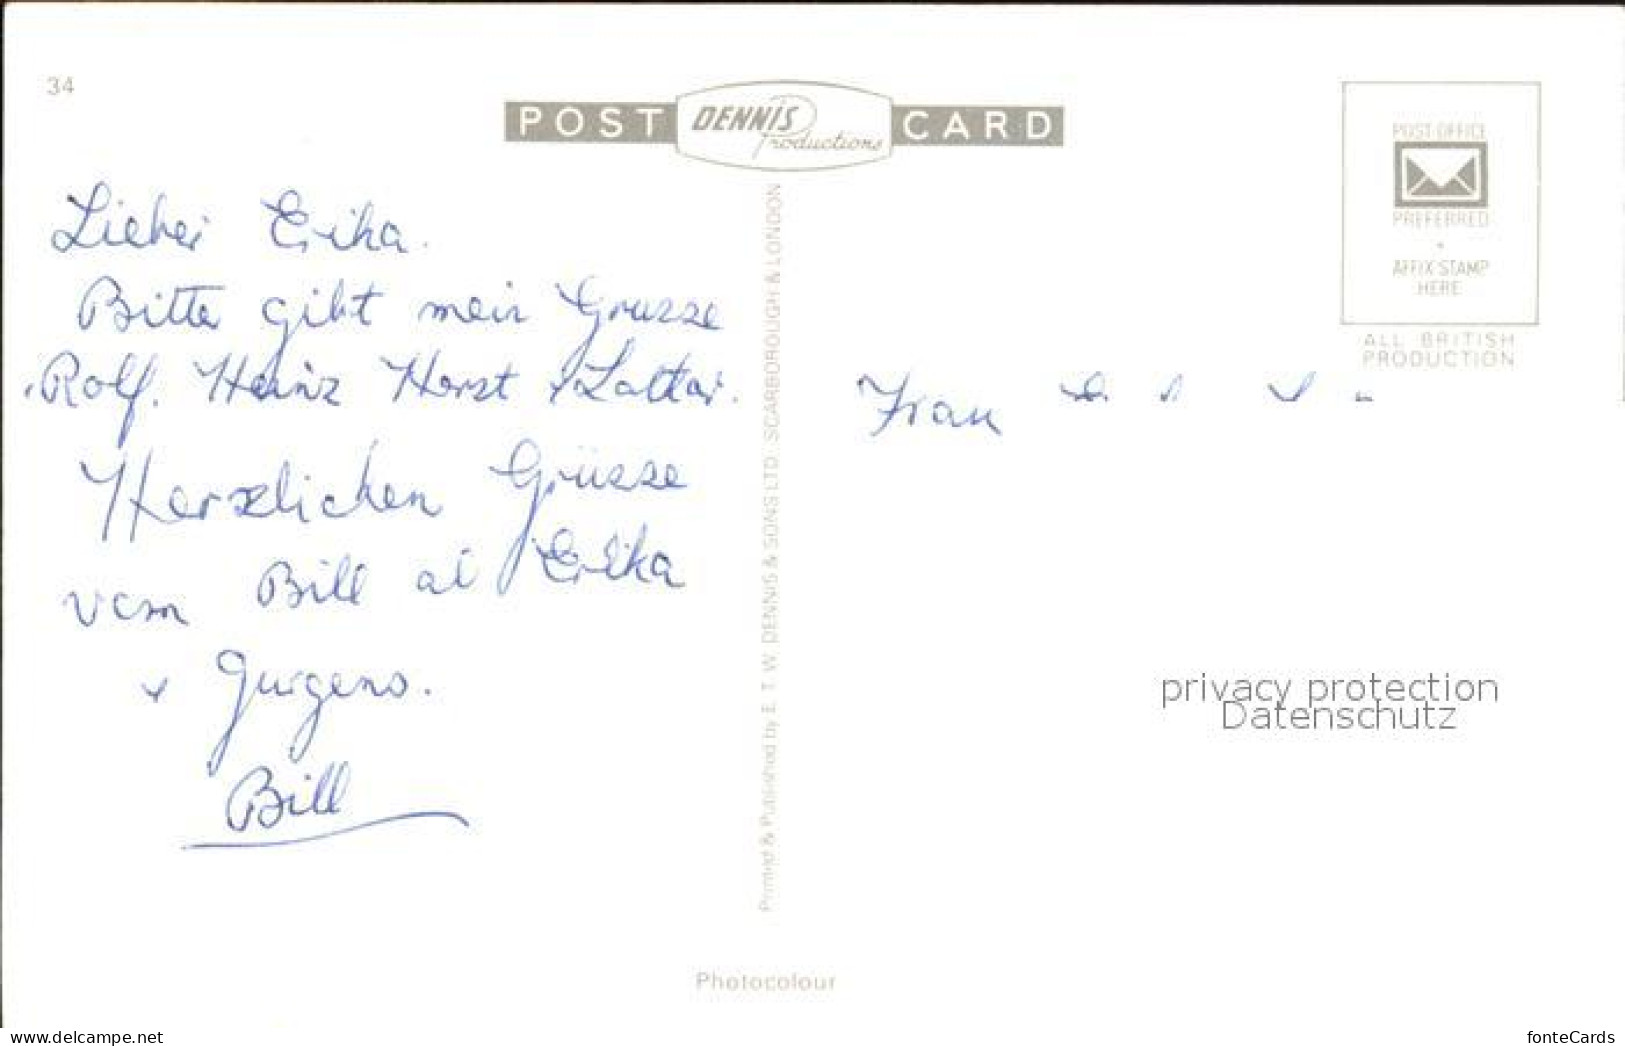 34
POST DENNIS Productions CARD
POST OFFICE
PREFERRED
AFFIX STAMP
HERE
ALL BRITISH
PRODUCTION
Lieber Erika.
Bitte gibt mein Grusse
Rolf. Heinz Horst +
Herzlichen Grüsse
vom Bill Erika
+ Jurgens.
Bill
Printed & Published by E. T. W. DENNIS & SONS LTD. SCARBOROUGH & LONDON
Frau
privacy protection
Datenschutz
Photocolour
www.delcampe.net
fonteCards